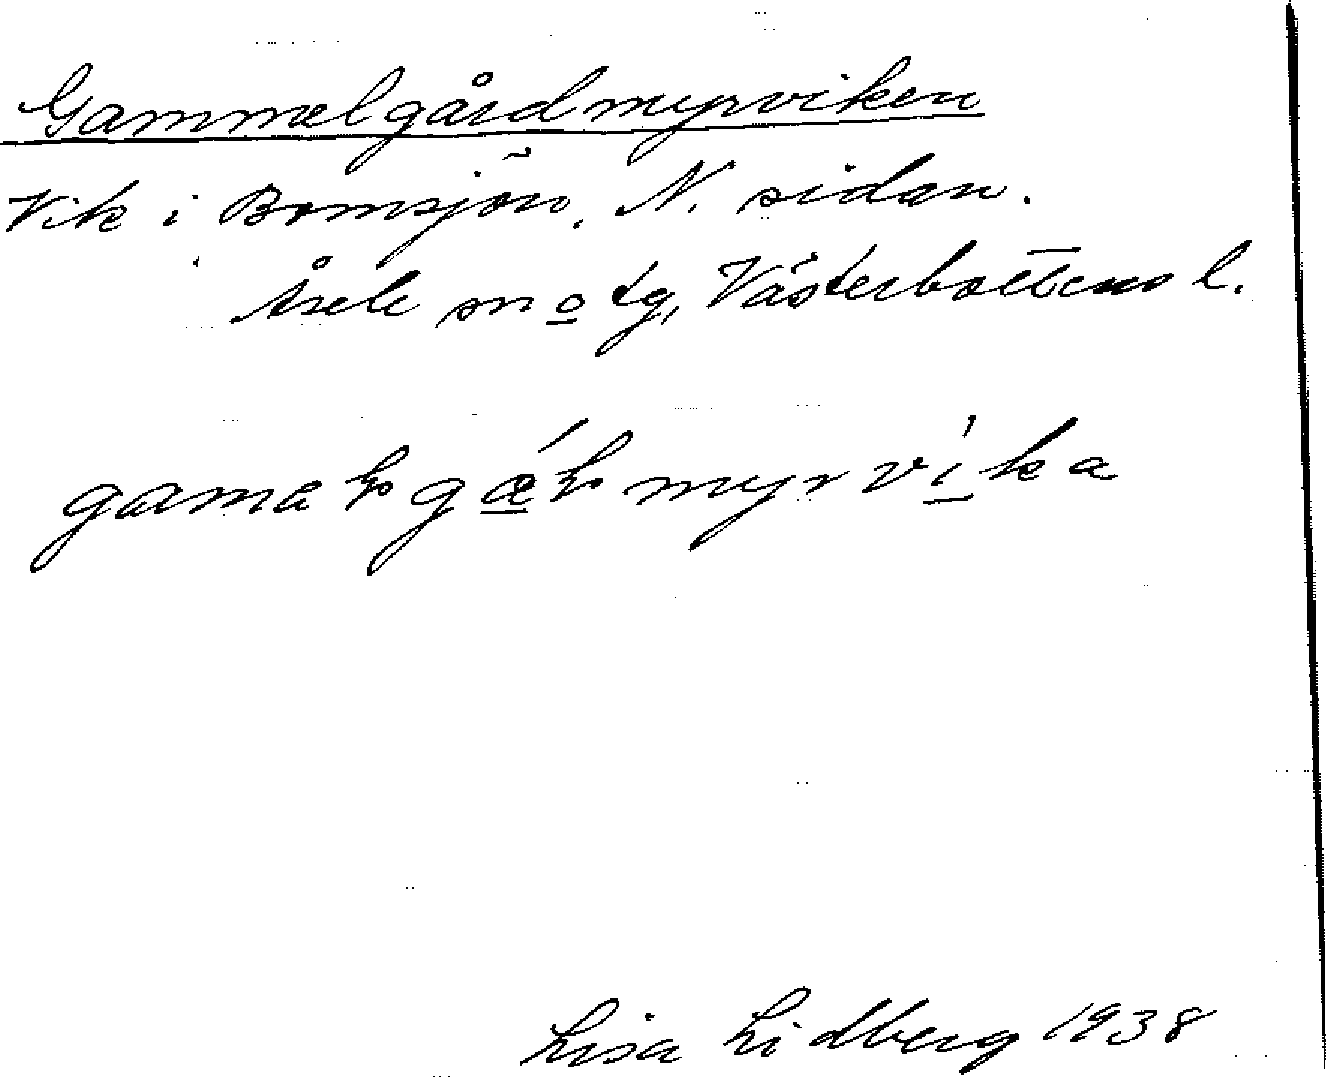 Gammelgårdmyrviken
Vik i Bomsjön. N. sidan.
Åsele sn o tg, Västerbottens l.
gamaɫgǽɫmyrvíka
Lisa Lidberg 1938